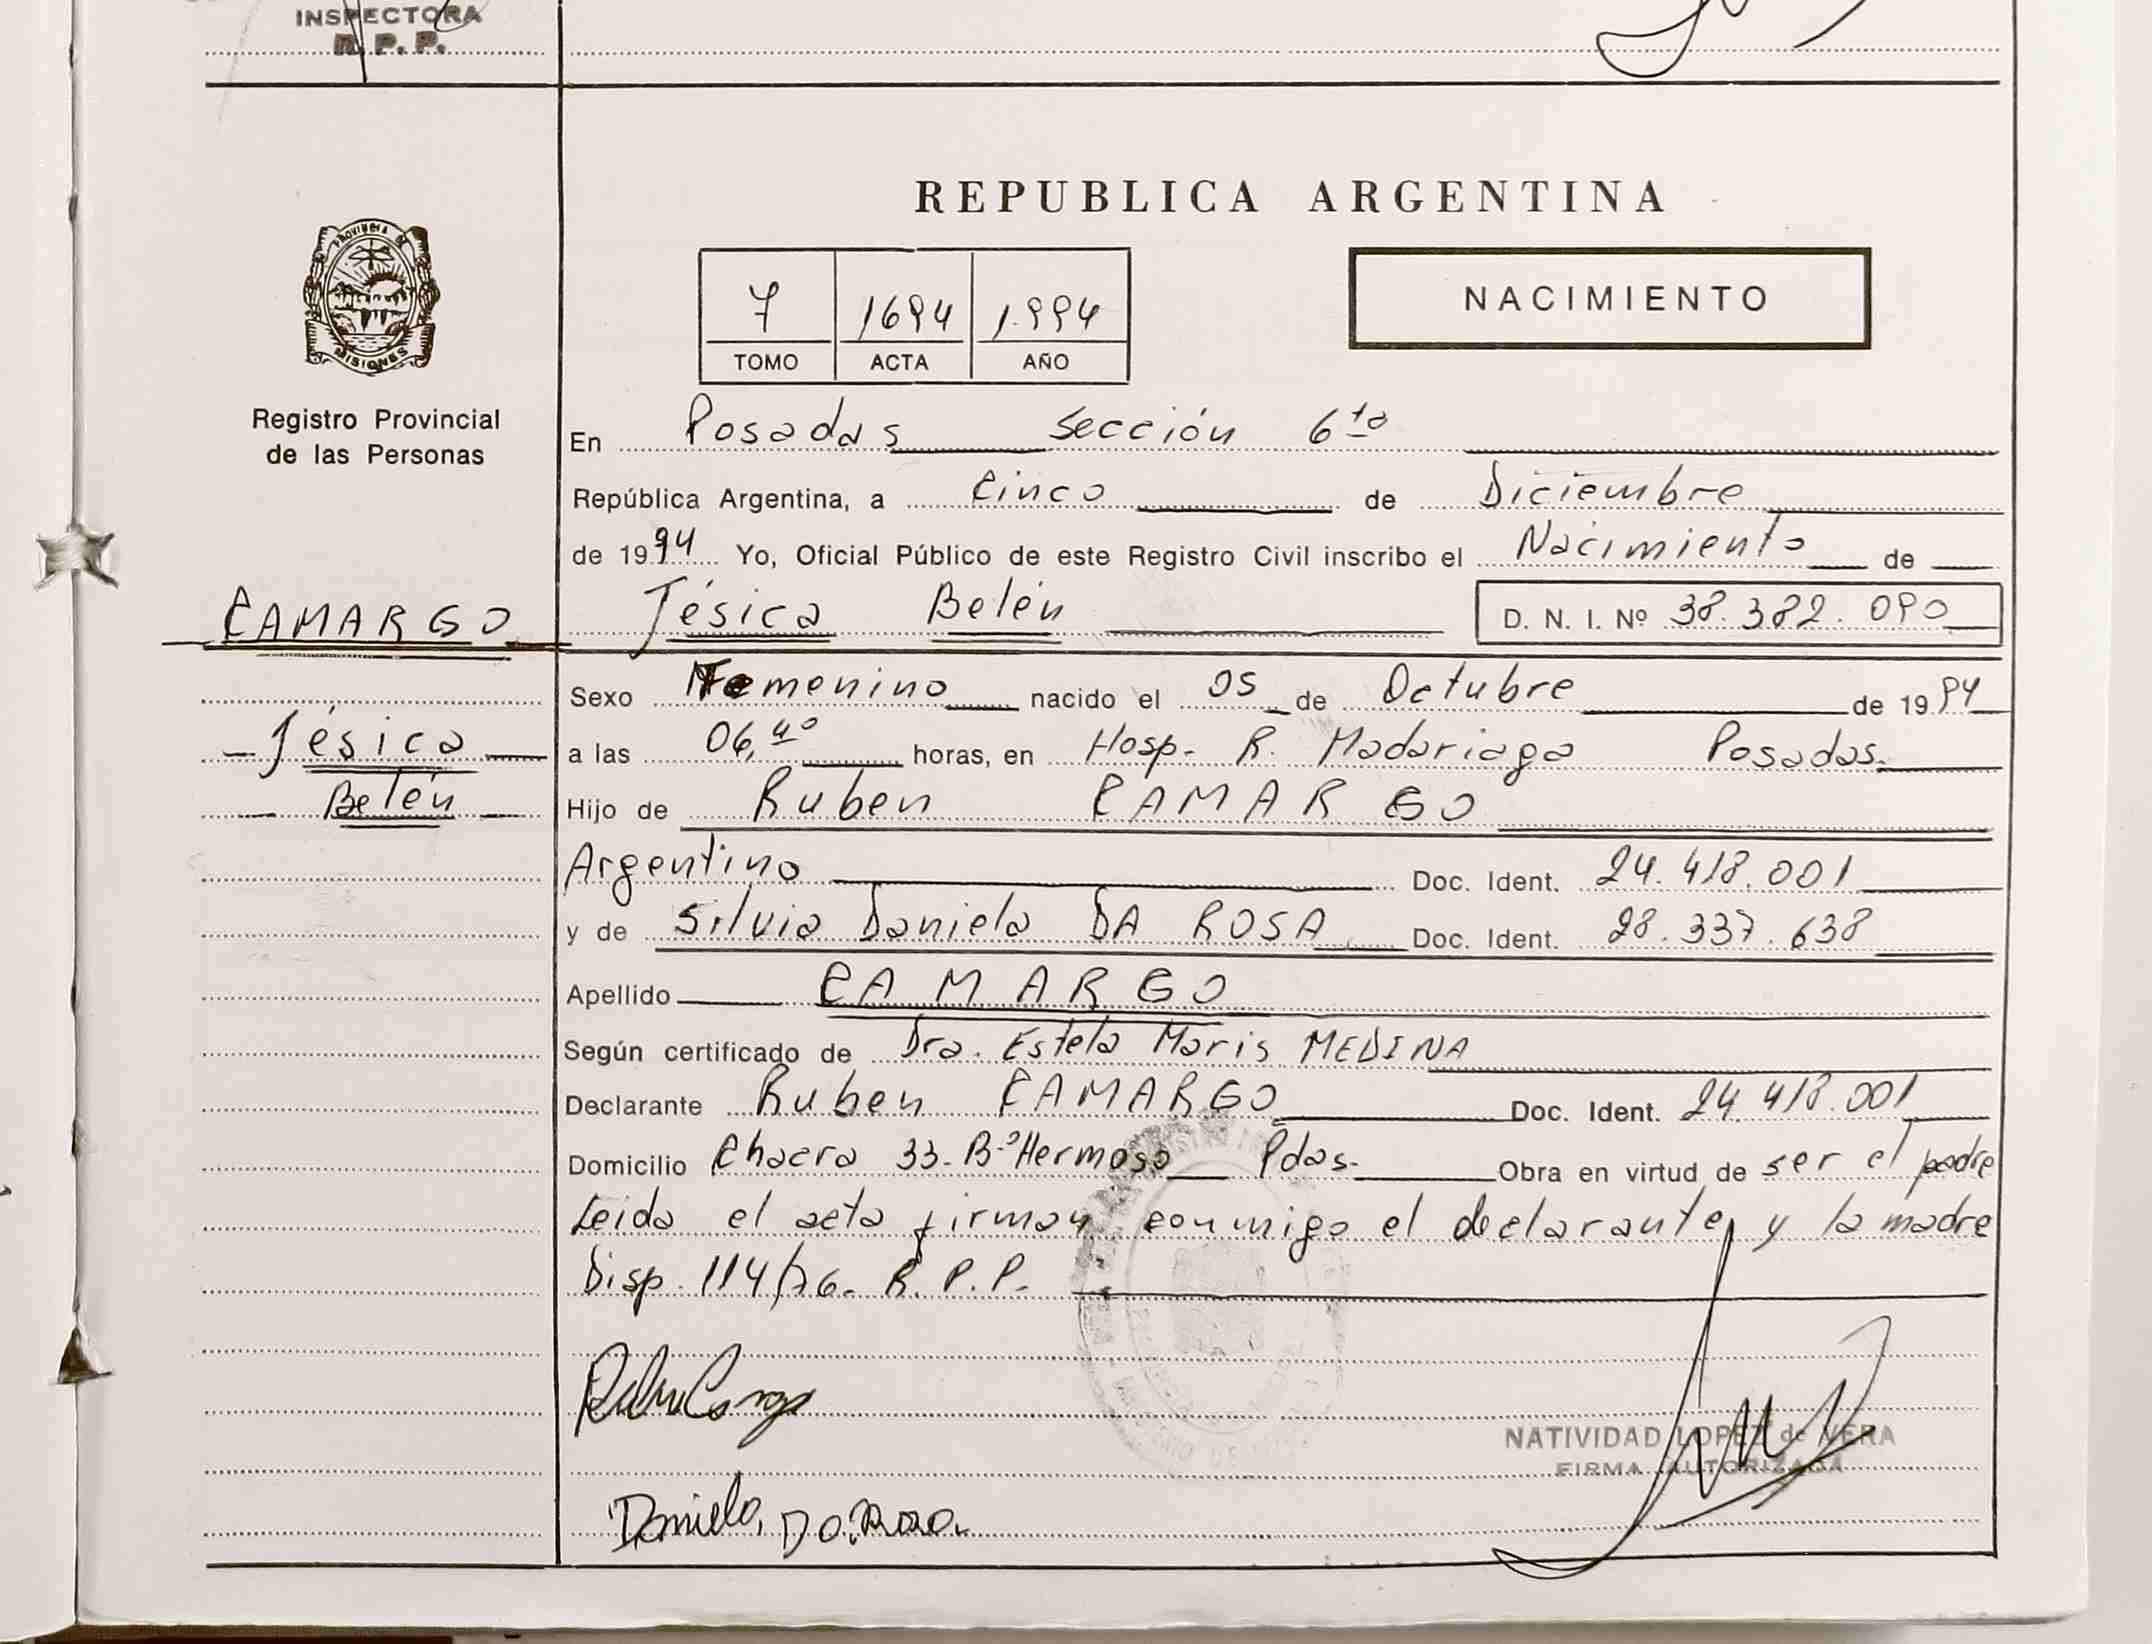 INSPECTORA
R. P. P.
PROVINCIA DE
MISIONES
Registro Provincial
de las Personas
CAMARGO
Jésica
Belén
REPUBLICA ARGENTINA
7 1694 1.994
TOMO ACTA AÑO
NACIMIENTO
En Posadas Sección 6ta
República Argentina, a Cinco de Diciembre
de 1994 Yo, Oficial Público de este Registro Civil inscribo el Nacimiento de
Jésica Belén D. N. I. Nº 38.382.090
Sexo Femenino nacido el 05 de Octubre de 1994
a las 06,40 horas, en Hosp. R. Madariaga Posadas.
Hijo de Ruben CAMARGO
Argentino Doc. Ident. 24.418.001
y de Silvia Daniela DA ROSA Doc. Ident. 28.337.638
Apellido CAMARGO
Según certificado de Dra. Estela Maris MEDINA
Declarante Ruben CAMARGO Doc. Ident. 24.418.001
Domicilio Chacra 33-Bº Hermoso Pdas. Obra en virtud de ser el padre
Leida el acta firman conmigo el declarante y la madre
Disp. 114/76. R. P. P.
NATIVIDAD LOPEZ de VERA
FIRMA AUTORIZADA
Daniela, Da Rosa.